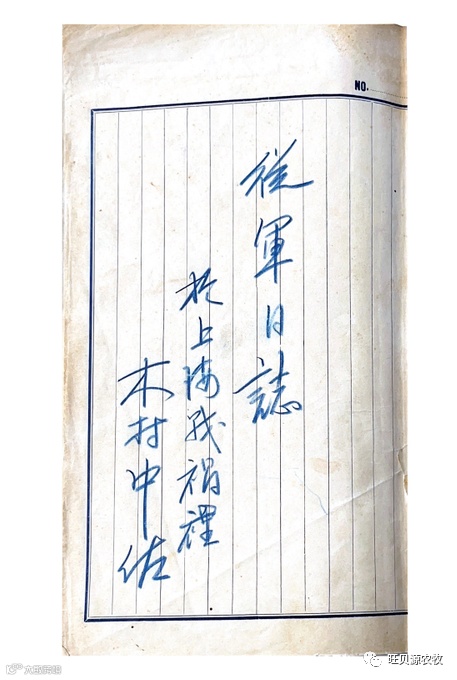 NO.
従軍日誌
於上海戦禍裡
木村中佐
旺贝源农牧